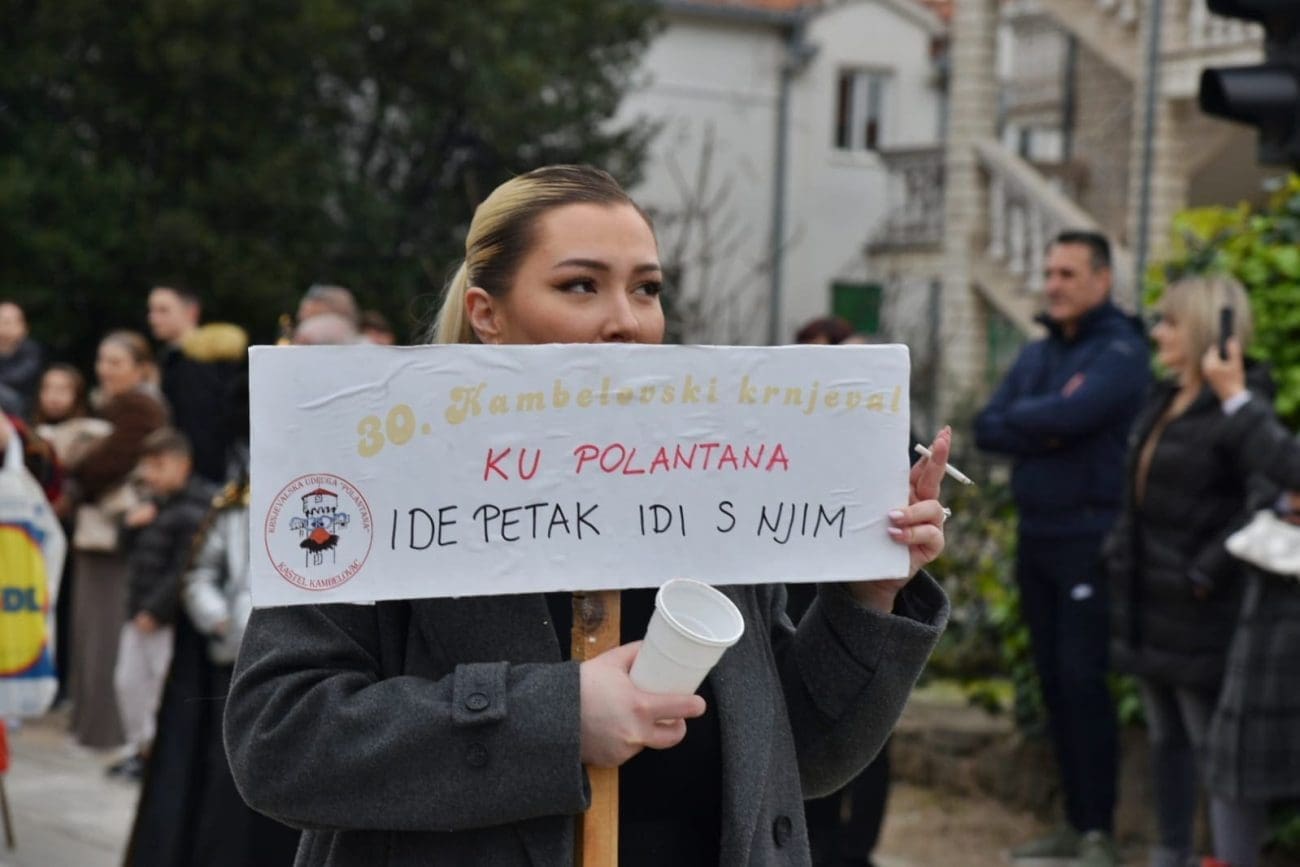 30. Kambelovski krnjeval
KU POLANTANA
IDE PETAK IDI S NJIM
KRNJEVALSKA UDRUGA "POLANTANA"
KAŠTEL KAMBELOVAC
DL